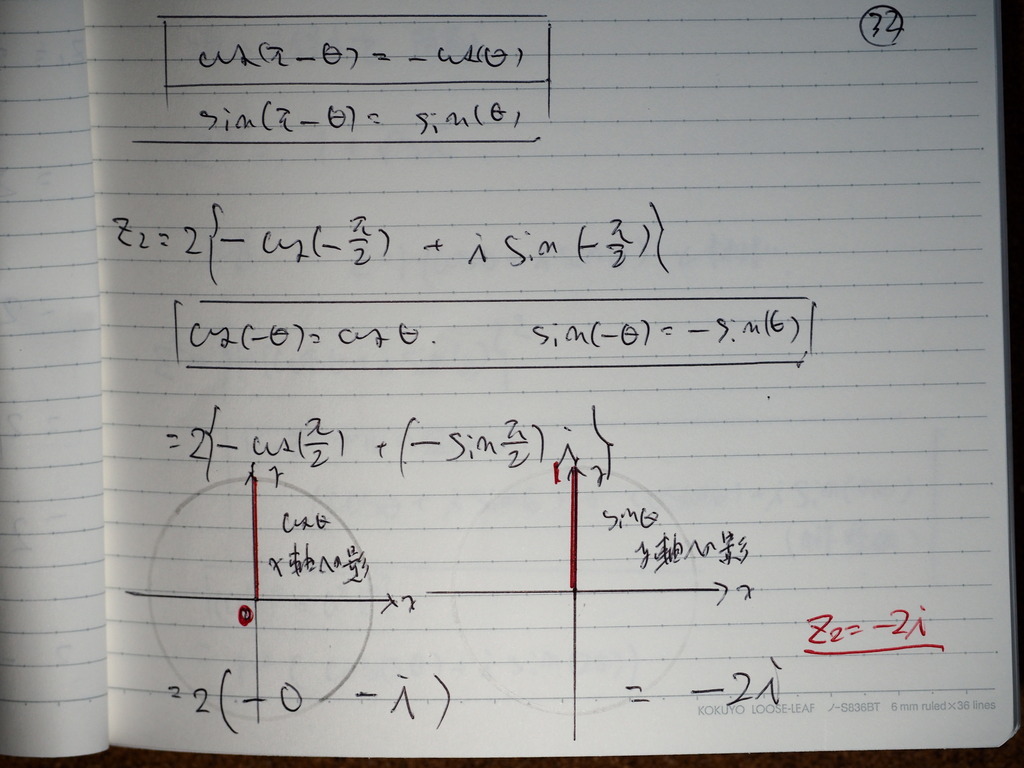 32
cos(π-θ) = -cos(θ)
sin(π-θ) = sin(θ)
Z₂ = 2{-cos(-π/2) + i sin(-π/2)}
cos(-θ) = cosθ. sin(-θ) = -sin(θ)
= 2{-cos(π/2) + (-sin π/2) i}
y
cosθ
x軸への影
x
0
1 y
sinθ
y軸への影
x
Z₂ = -2i
= 2(-0 - i) = -2i
KOKUYO LOOSE-LEAF ノ-S836BT 6 mm ruled×36 lines